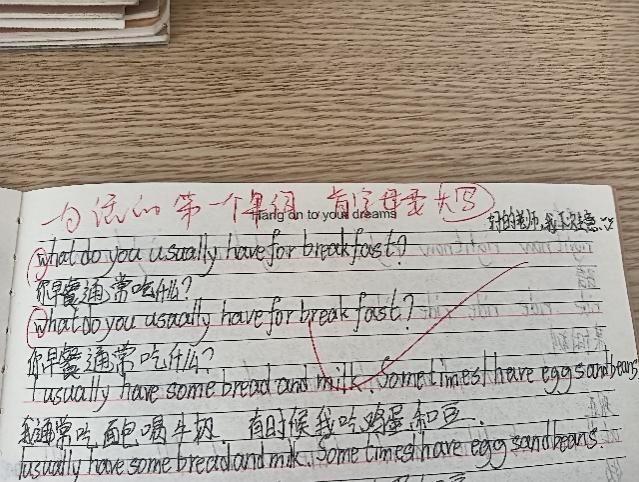 句活的第一个单词 首字母要大写
Hang on to your dreams
好的老师,我下次注意
what do you usually have for breakfast?
你早餐通常吃什么?
what do you usaally have for break fast?
你早餐通常吃什么?
I usually have some bread and milk. Sometimes I have eggs and beans
我通常吃面包喝牛奶. 有时候我吃鸡蛋和豆.
I usually have some bread and milk. Sometimes I have eggs and beans.